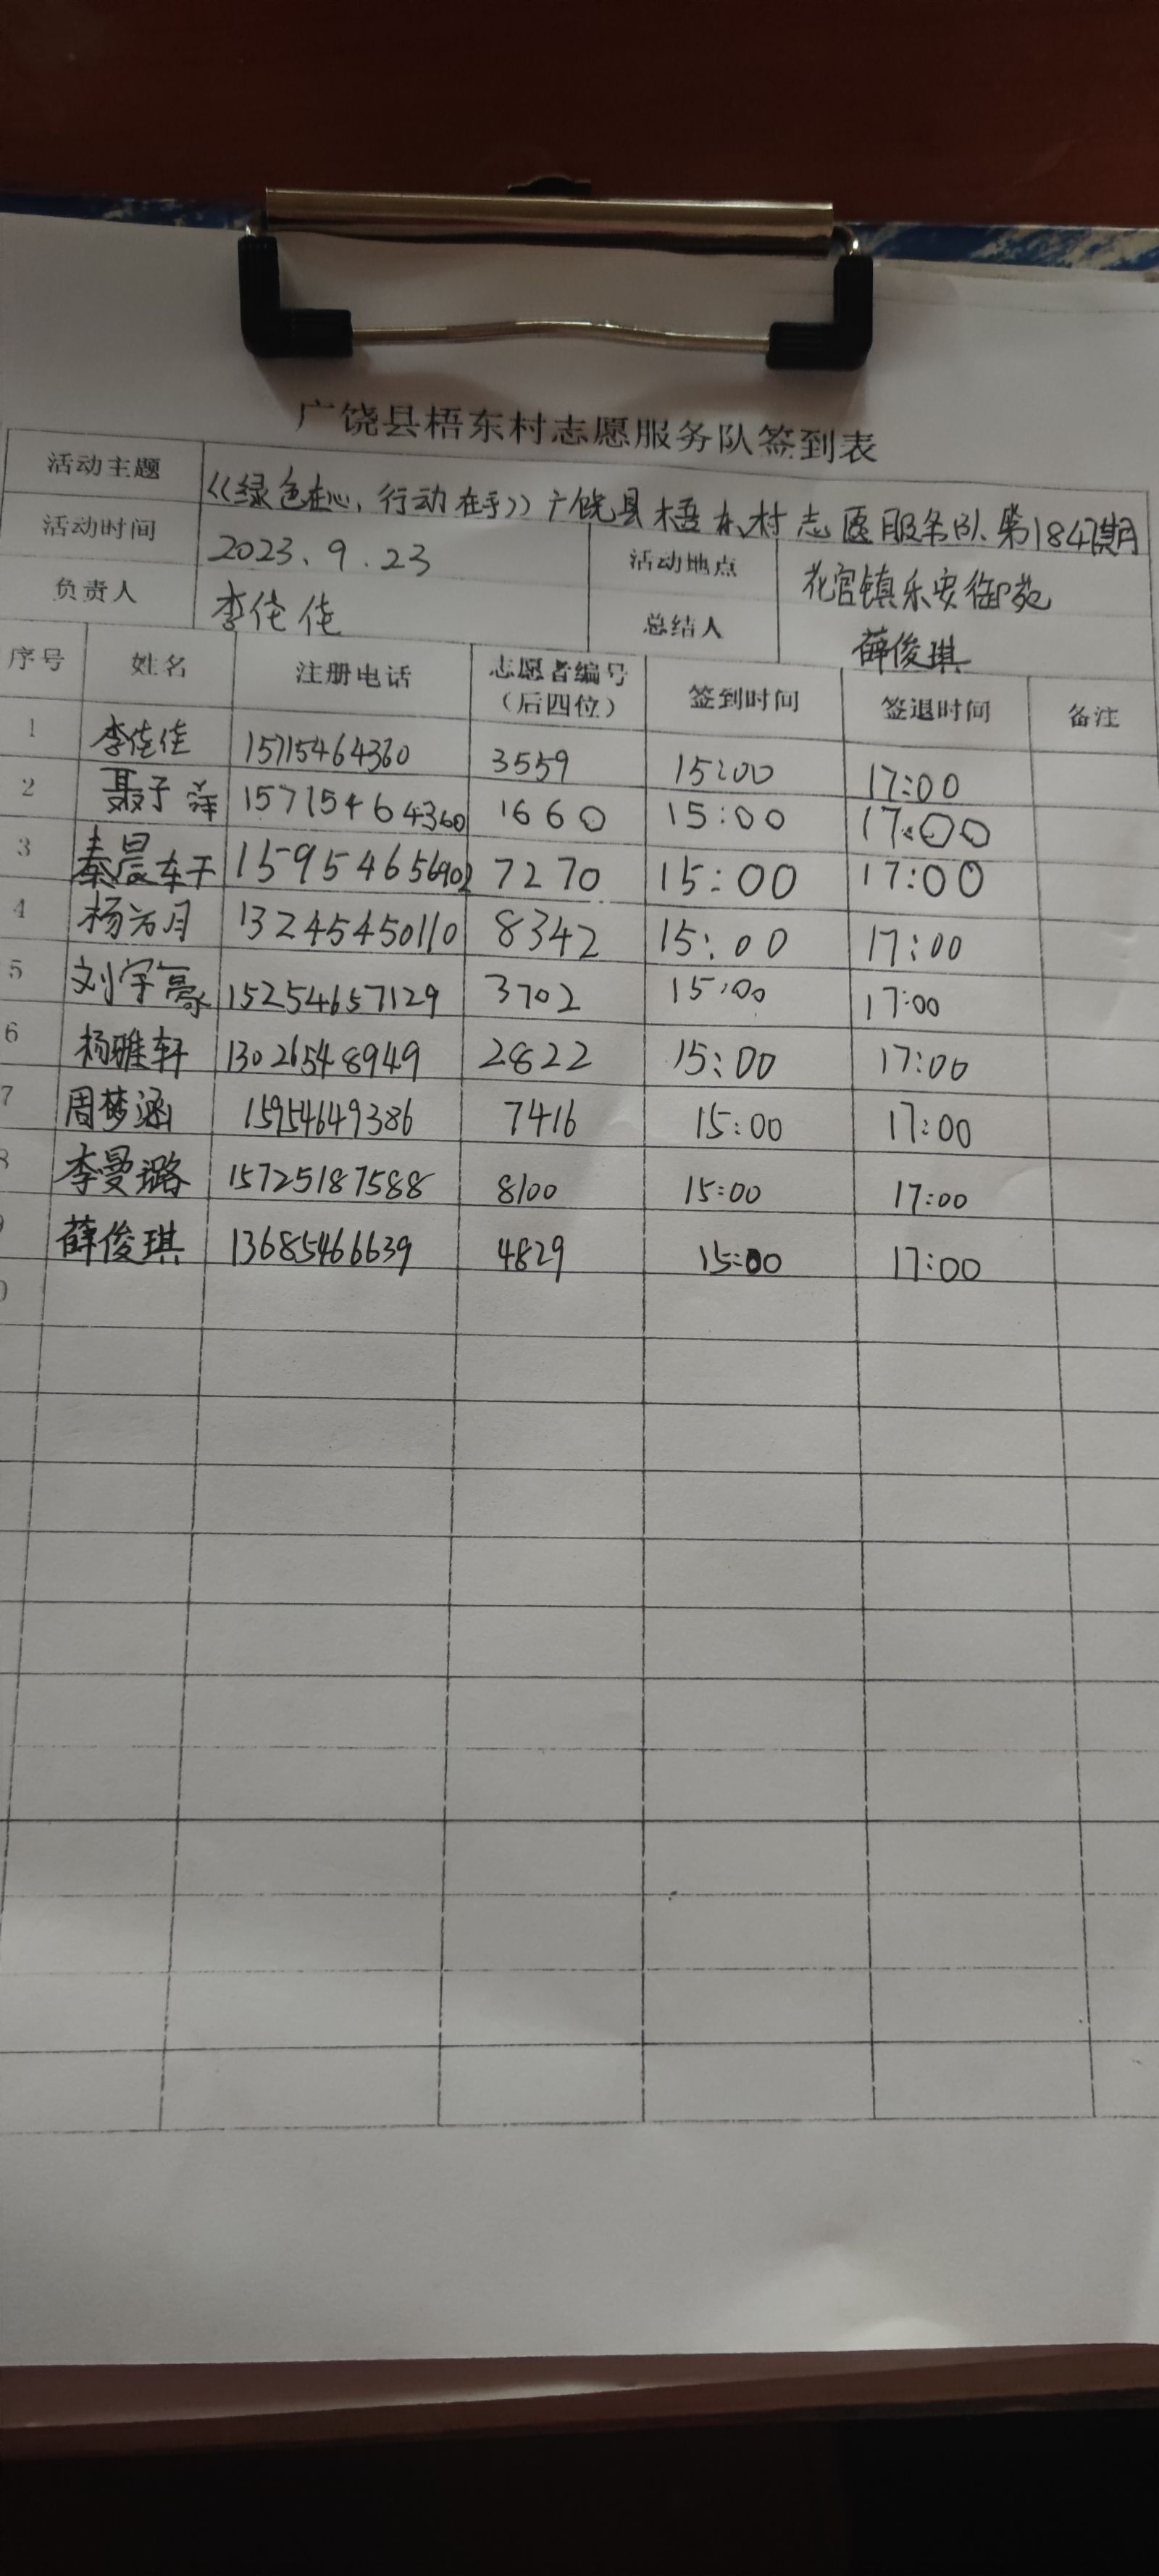 广饶县梧东村志愿服务队签到表
活动主题 《绿色在心、行动在手》广饶县梧东村志愿服务队第1847期
活动时间 2023.9.23 活动地点 花官镇乐安御苑
负责人 李佳佳 总结人 薛俊琪
序号 姓名 注册电话 志愿者编号（后四位） 签到时间 签退时间 备注
1 李佳佳 15715464360 3559 15:00 17:00
2 聂子萍 15715464360 1660 15:00 17:00
3 秦晨轩 15954656902 7270 15:00 17:00
4 杨方月 13245450110 8342 15:00 17:00
5 刘宇豪 15254657129 3702 15:00 17:00
6 杨雅轩 13026548949 2822 15:00 17:00
7 周梦涵 15954649386 7416 15:00 17:00
李曼璐 15725187588 8100 15:00 17:00
薛俊琪 13685466639 4829 15:00 17:00